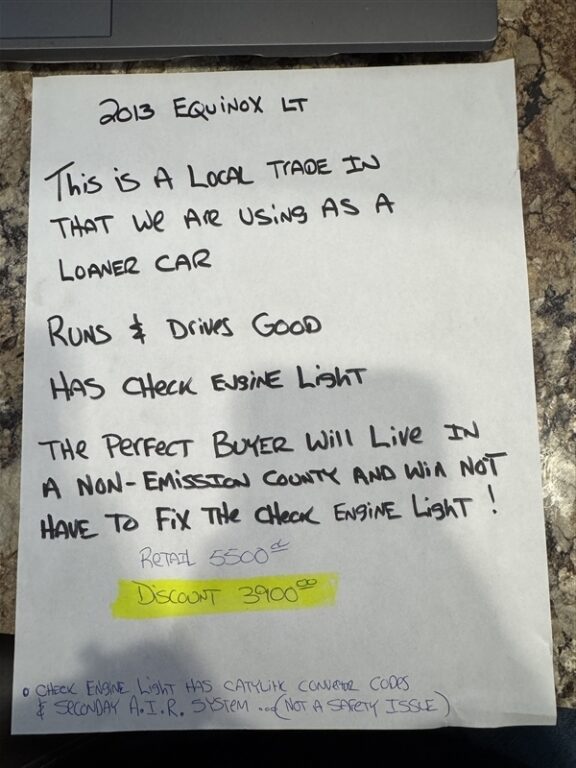 2013 EQUINOX LT
THIS IS A LOCAL TRADE IN
THAT WE ARE USING AS A
LOANER CAR
RUNS & DRIVES GOOD
HAS CHECK ENGINE LIGHT
THE PERFECT BUYER WILL LIVE IN
A NON-EMISSION COUNTY AND WILL NOT
HAVE TO FIX THE CHECK ENGINE LIGHT!
RETAIL 5500
DISCOUNT 3900.00
• CHECK ENGINE LIGHT HAS CATYLITIC CONVERTOR CODES
& SECONDAY A.I.R. SYSTEM ...(NOT A SAFETY ISSUE)